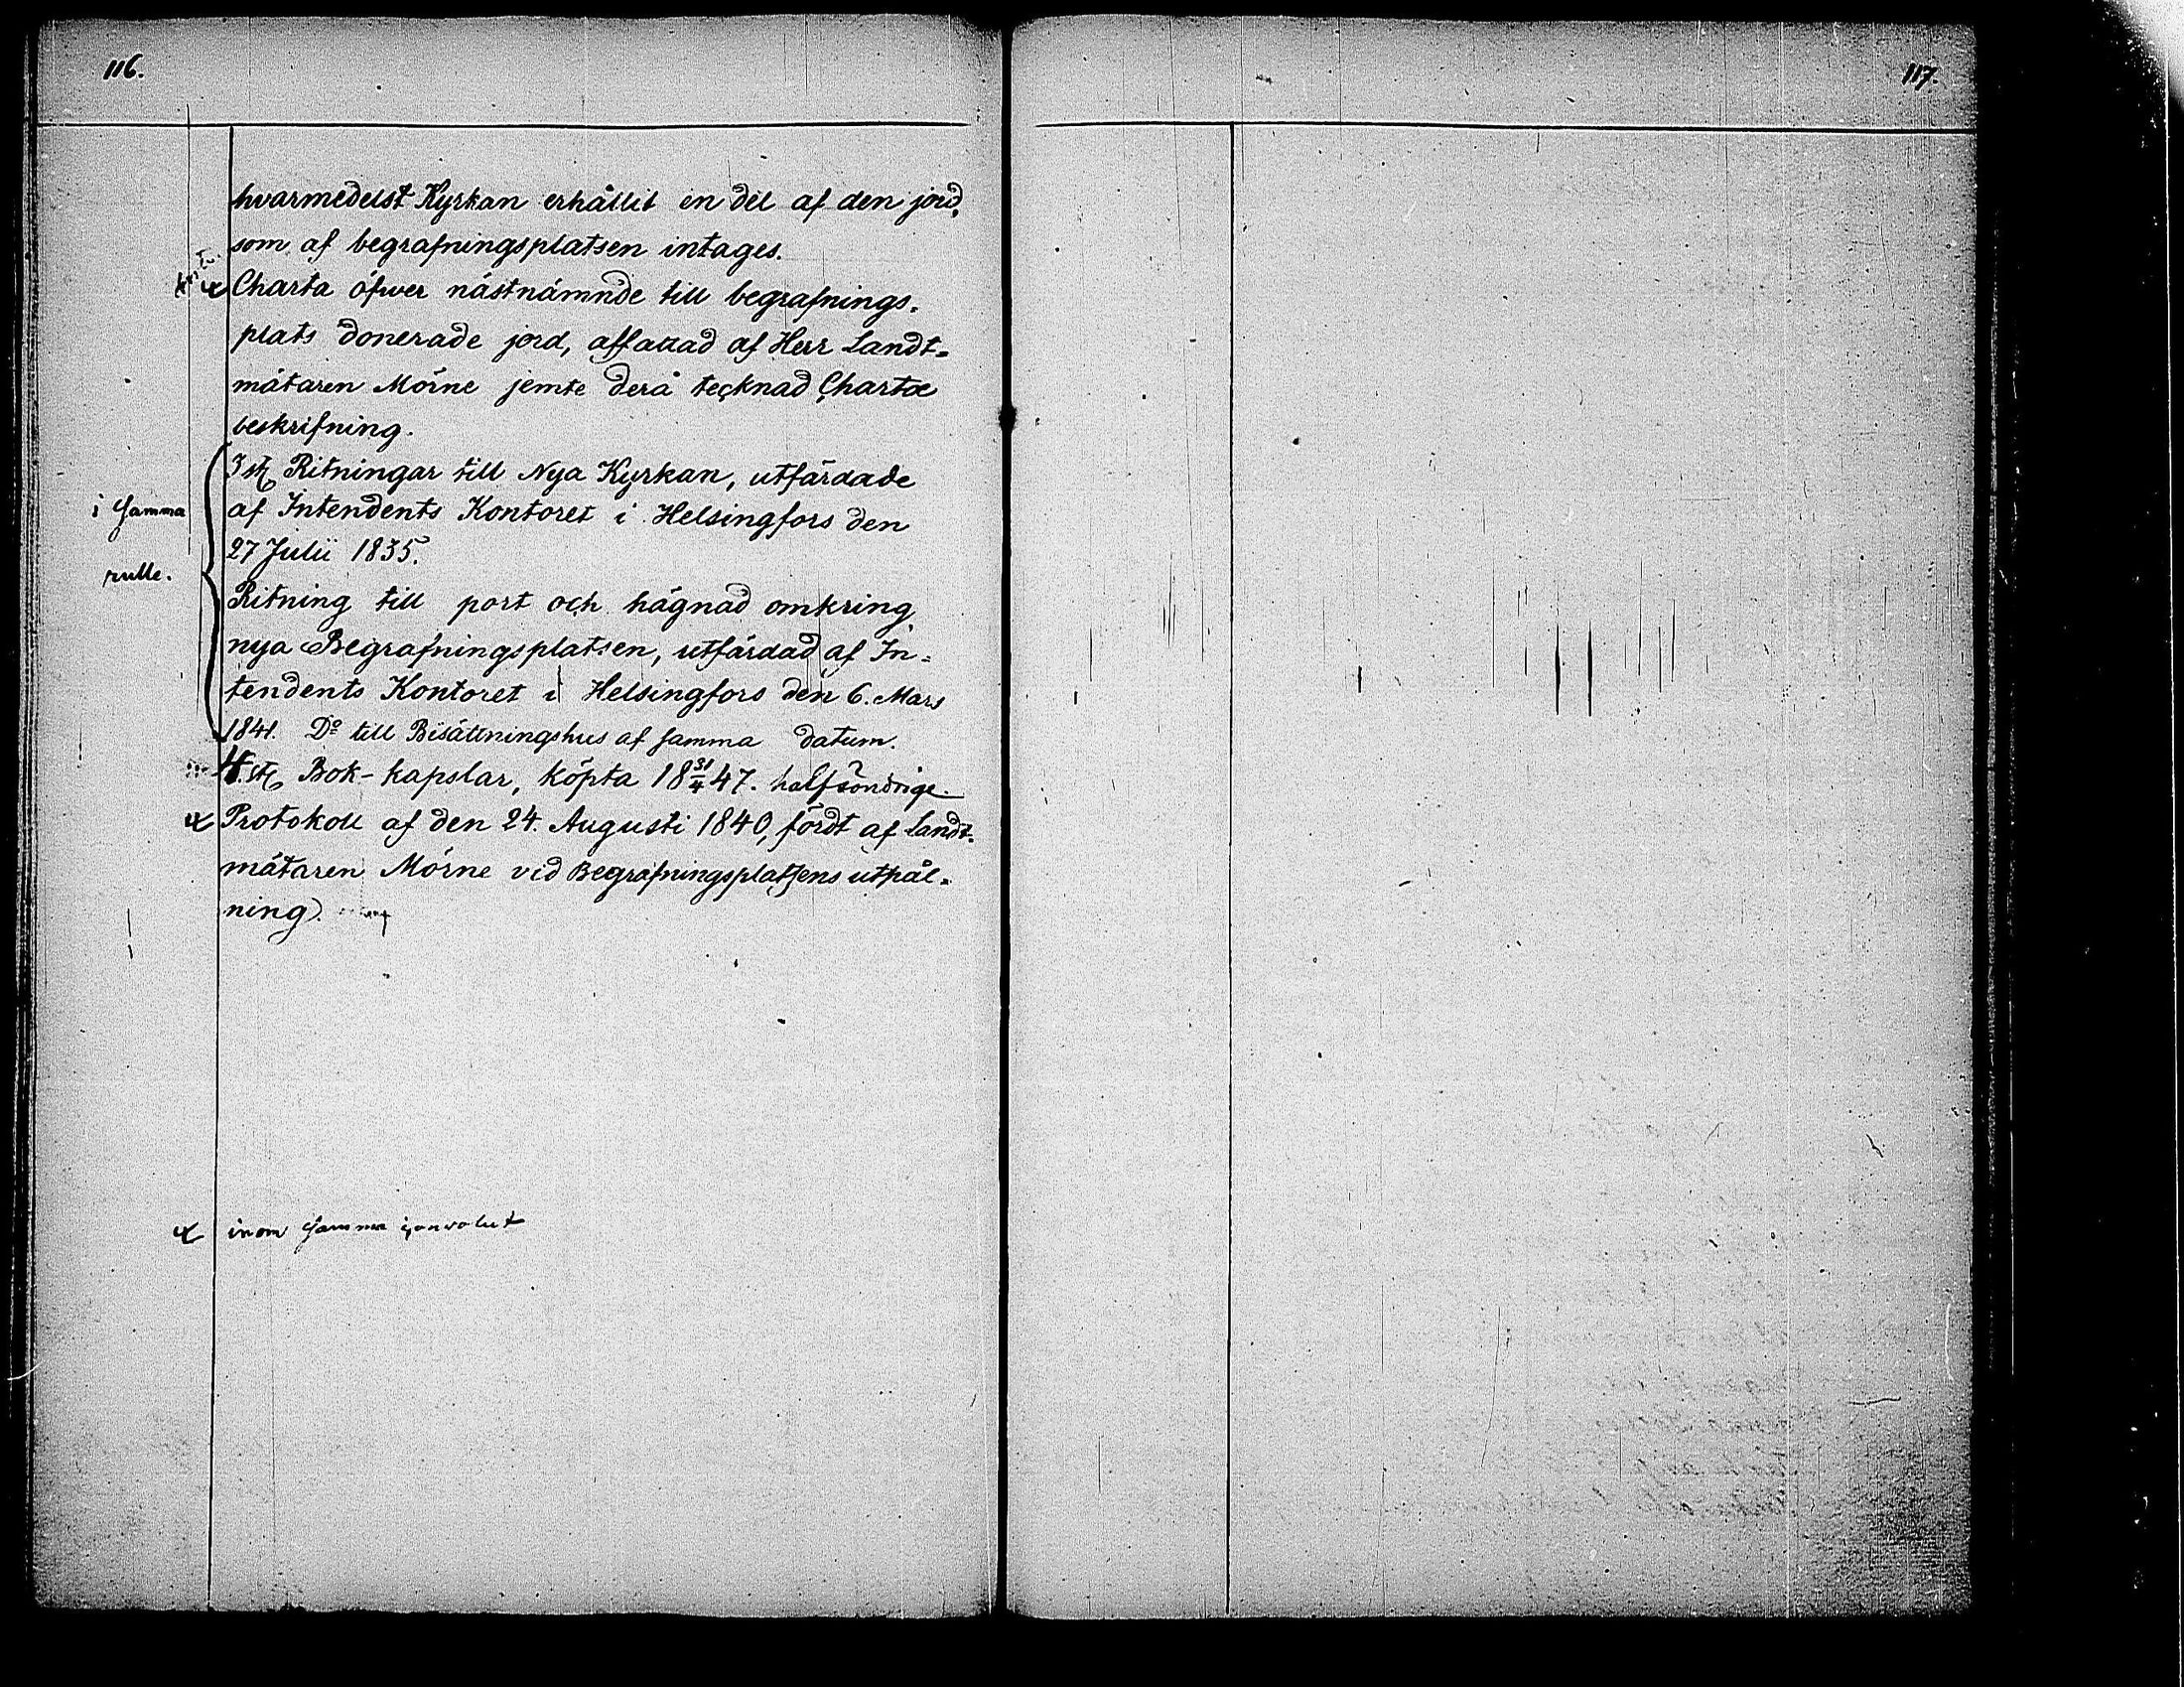 116.
117.
hvarmedelst Kyrkan erhållit en del af den jord,
som af begrafningsplatsen intages.
Charta öfwer nästnämnde till begrafnings-
plats donerade jord, affattad af Herr Landt-
mätaren Mörne jemte derå tecknad Charta
beskrifning.
3 st. Ritningar till Nya Kyrkan, utfärdade
i samma
af Intendents Kontoret i Helsingfors den
27 Julii 1835.
rulle.
Ritning till port och hägnad omkring
nya Begrafningsplatsen, utfärdad af In-
tendents Kontoret i Helsingfors den 6. Mars
1841. Do till Bisättningshus af samma datum.
4. st. Bok-kapslar, köpta 18 31/4 47. halfsöndrige.
Protokoll af den 24. Augusti 1840, fördt af Landt-
mätaren Mörne vid Begrafningsplatsens utpål-
ning.
inom samma convolut